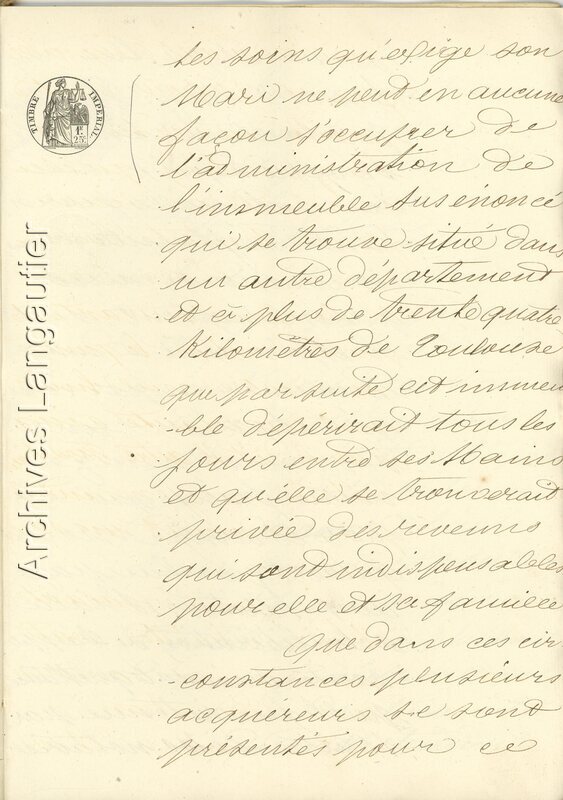 les soins qu'exige son
Mari ne peut en aucune
façon s'occuper de
l'administration de
l'immeuble sus énoncé
qui se trouve situé dans
un autre département
et à plus de trente quatre
Kilomètres de Toulouse
que par suite cet immeu
-ble dépérirait tous les
jours entre ses Mains
et qu'elle se trouverait
privée des revenus
qui sont indispensables
pour elle et sa famille
que dans ces cir
constances plusieurs
acquéreurs se sont
présentés pour ce
TIMBRE IMPERIAL
Archives Langautier